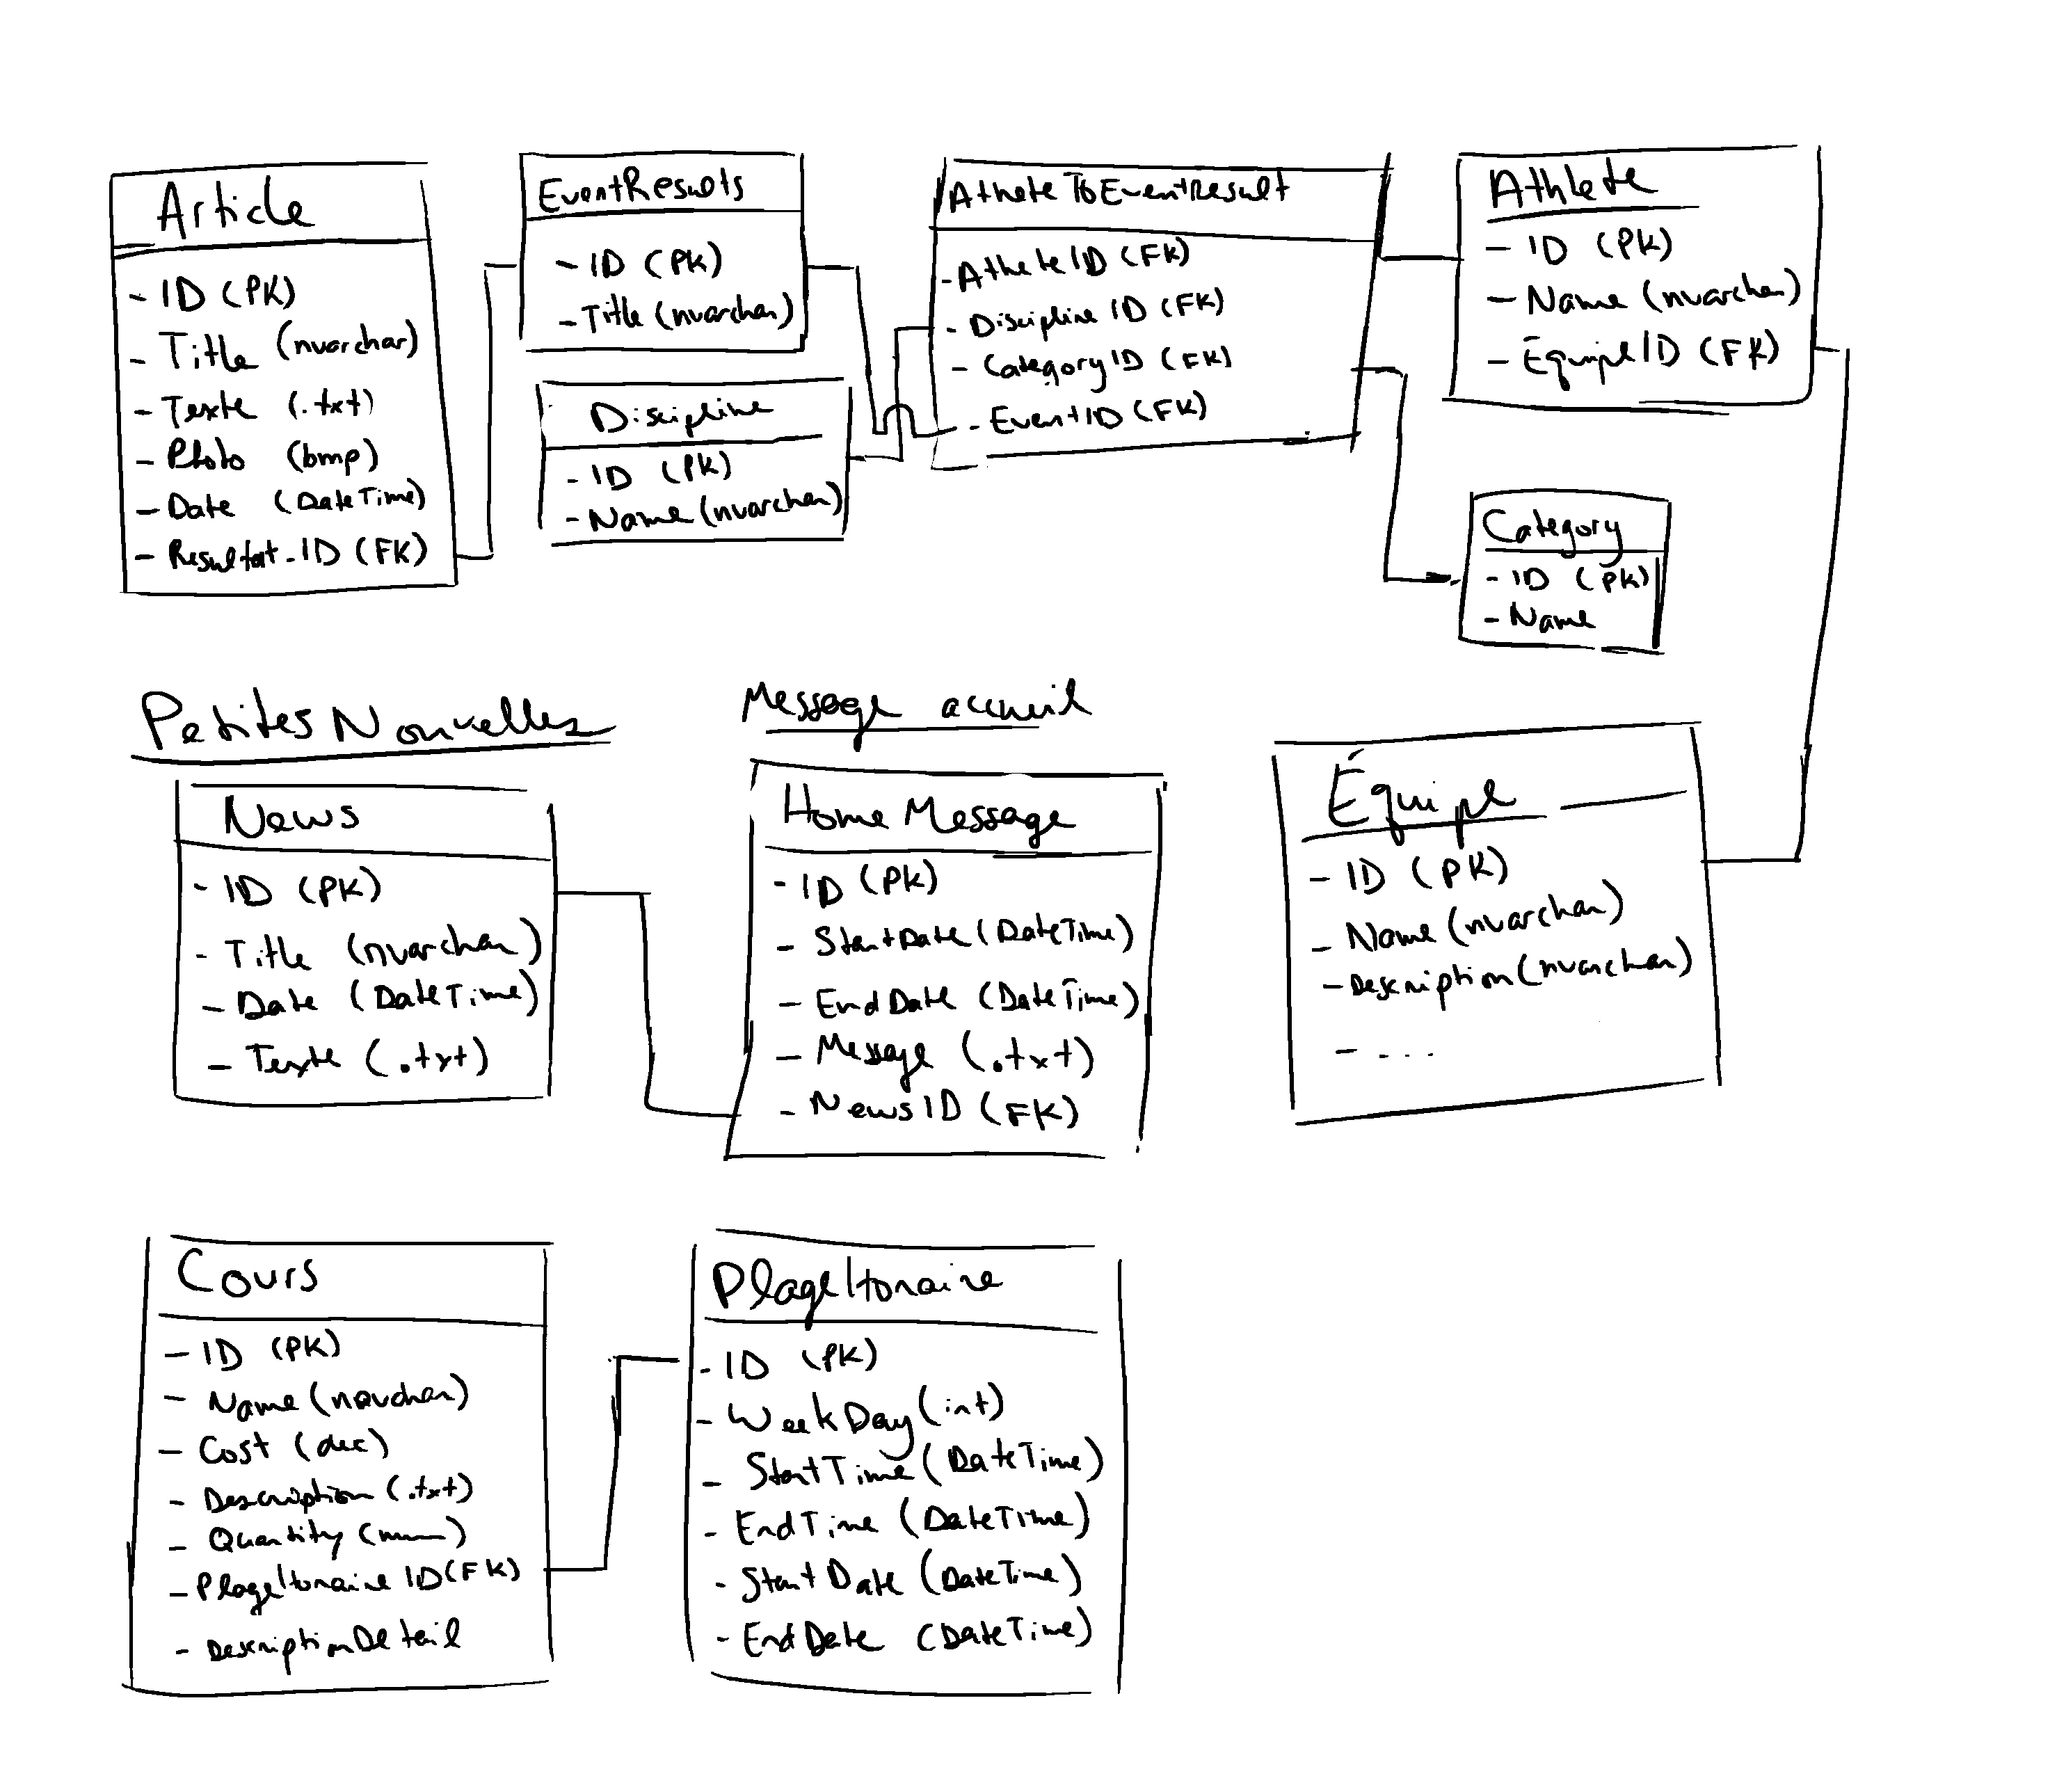 Article
- ID (PK)
- Title (nvarchar)
- Texte (.txt)
- Photo (bmp)
- Date (DateTime)
- Resultat-ID (FK)
EventResults
- ID (PK)
- Title (nvarchar)
Discipline
- ID (PK)
- Name (nvarchar)
AthleteToEventResult
- AthleteID (FK)
- Discipline ID (FK)
- CategoryID (FK)
- EventID (FK)
Athlete
- ID (PK)
- Name (nvarchar)
- EquipeID (FK)
Category
- ID (PK)
- Name
Petites Nouvelles
News
- ID (PK)
- Title (nvarchar)
- Date (DateTime)
- Texte (.txt)
Message accueil
Home Message
- ID (PK)
- StartDate (DateTime)
- EndDate (DateTime)
- Message (.txt)
- NewsID (FK)
Équipe
- ID (PK)
- Name (nvarchar)
- Description (nvarchar)
- ....
Cours
- ID (PK)
- Name (navchar)
- Cost (dec)
- Description (.txt)
- Quantity
- PlageHoraire ID (FK)
- DescriptionDetail
PlageHoraire
- ID (PK)
- WeekDay (int)
- StartTime (DateTime)
- EndTime (DateTime)
- StartDate (DateTime)
- EndDate (DateTime)